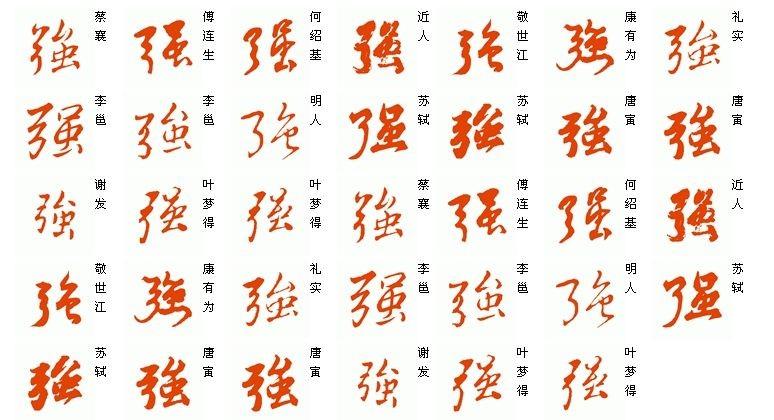 強 蔡襄 强 傅连生 强 何绍基 强 近人 強 敬世江 強 康有为 強 礼实
强 李邕 強 李邕 強 明人 强 苏轼 強 苏轼 強 唐寅 強 唐寅
強 谢发 强 叶梦得 强 叶梦得 強 蔡襄 强 傅连生 强 何绍基 强 近人
強 敬世江 強 康有为 強 礼实 强 李邕 強 李邕 強 明人 强 苏轼
強 苏轼 強 唐寅 強 唐寅 強 谢发 强 叶梦得 强 叶梦得